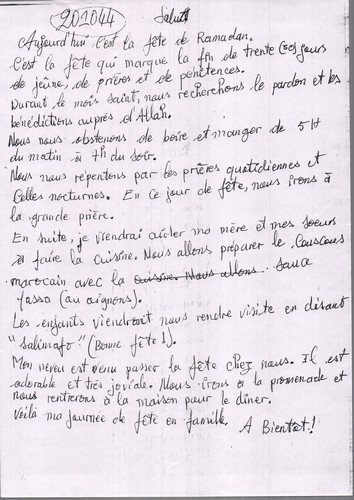 201044 Salut
Aujourd'hui c'est la fête de Ramadan.
C'est la fête qui marque la fin de trente (30) jours
de jeûne, de prières et de pénétences.
Durant le mois saint, nous recherchons le pardon et les
bénédictions auprès d'Allah.
Nous nous abstenons de boire et manger de 5H
du matin à 7h du soir.
Nous nous répentons par les prières quotidiennes et
celles nocturnes. En ce jour de fête, nous irons à
la grande prière.
En suite, je viendrai aider ma mère et mes soeurs
à faire la cuisine. Nous allons préparer le Couscous
marocain avec la cuisine. Nous allons. sauce
Yassa (au oignons).
Les enfants viendront nous rendre visite en disant
"Salimafo" (Bonne fête!).
Mon neveu est venu passer la fête chez nous. Il est
adorable et très joviale. Nous irons à la promenade et
nous rentrerons à la maison pour le dîner.
Voilà ma journée de fête en famille. A Bientot!